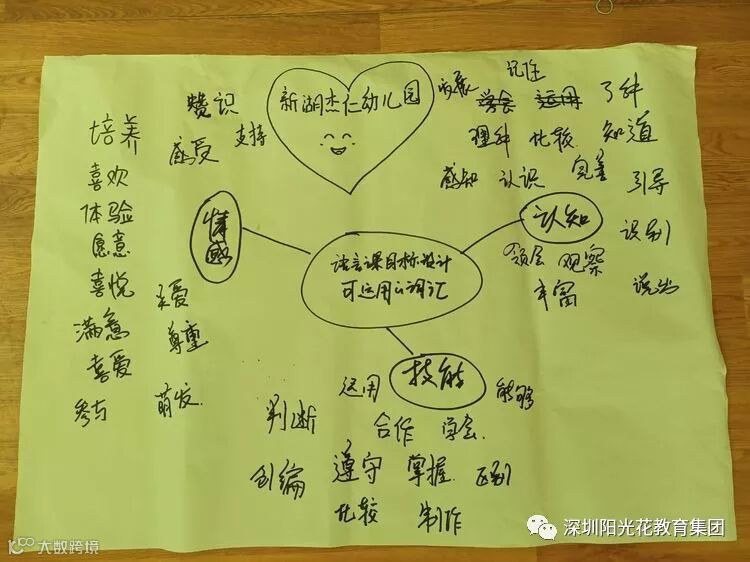 新湖杰仁幼儿园
情感
培养
赞识
感受
支持
喜欢
体验
愿意
喜悦
满意
喜爱
参与
尊重
萌发
认知
发展
记住
学会
运用
了解
理解
比较
知道
感知
认识
完善
引导
领会
观察
识别
丰富
说出
语言课目标设计
可运用的词汇
技能
运用
能够
判断
合作
学会
创编
遵守
掌握
区别
比较
制作
深圳阳光花教育集团
大数跨境